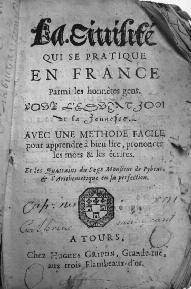 La Civilité
QUI SE PRATIQUE
EN FRANCE
Parmi les honnêtes gens.
POUR L'EDUCATION
de la Jeunesse.
AVEC UNE METHODE FACILE
pour apprendre à bien lire, prononcer
les mots & les écrire.
Et les Quatrains du Sage Monsieur de Pybrac
& l'Arithmetique en sa perfection.
A TOURS,
Chez HUGUES GRIPON, Grande-rue,
aux trois Flambeaux-d'or.